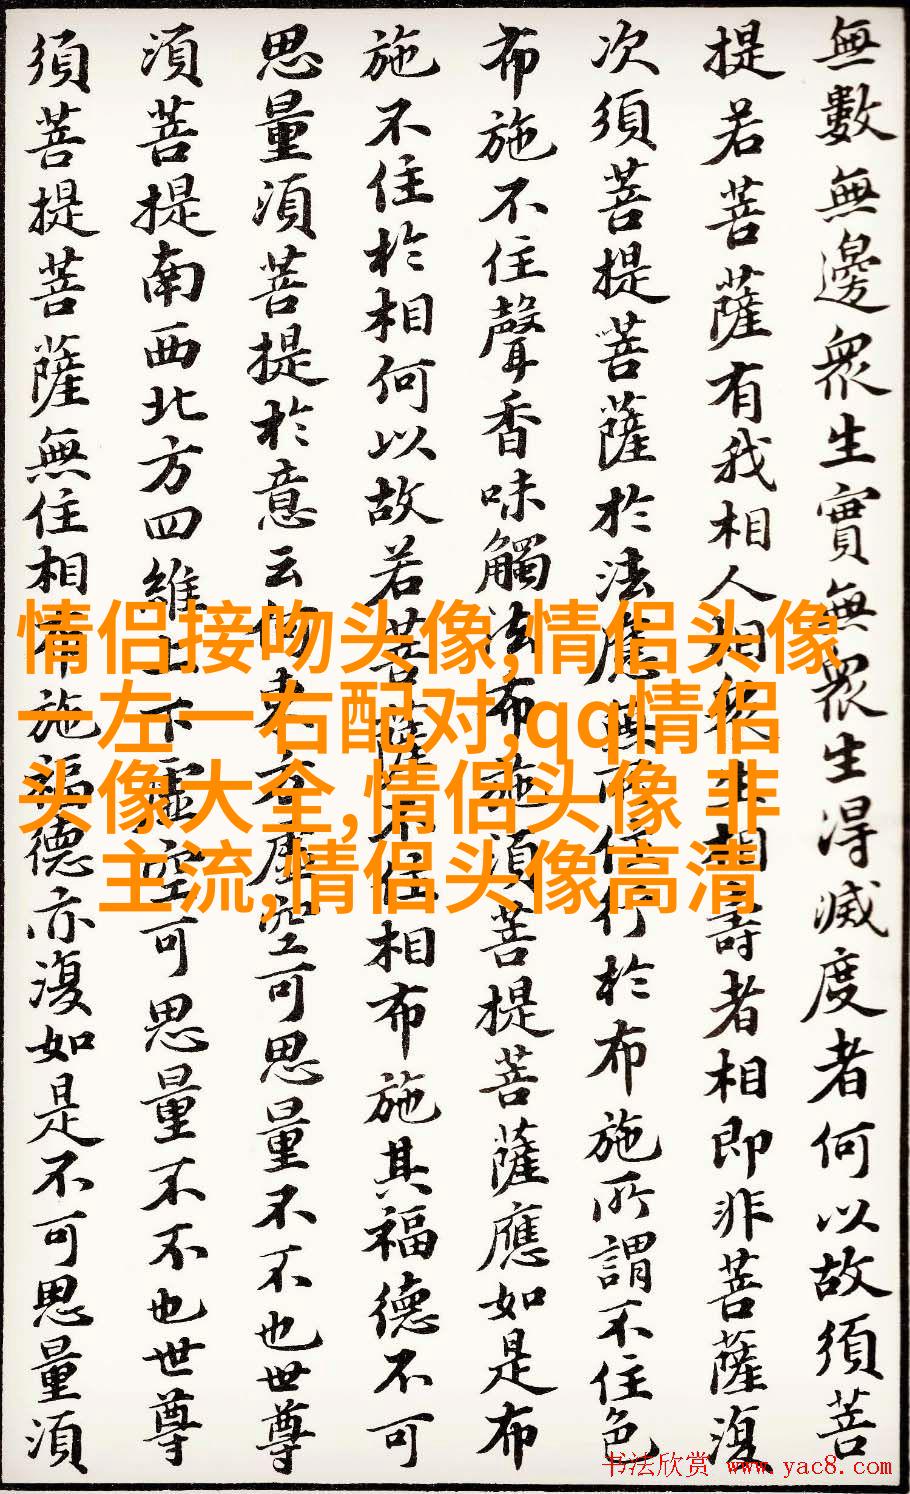 無數無邊衆生實無衆生得滅度者何以故須菩
提若菩薩有我相人相衆生相壽者相即非菩薩復
次須菩提菩薩於法應無所住行於布施所謂不住色
布施不住聲香味觸法布施須菩提菩薩應如是布
施不住於相何以故若菩薩不住相布施其福德不可
思量須菩提於意云何東方虛空可思量不不也世尊
須菩提南西北方四維上下虛空可思量不不也世尊
須菩提菩薩無住相布施福德亦復如是不可思量須
情侣接吻头像,情侣头像
一左一右配对,qq情侣
头像大全,情侣头像 非
主流,情侣头像高清
书法欣赏 www.yac8.com